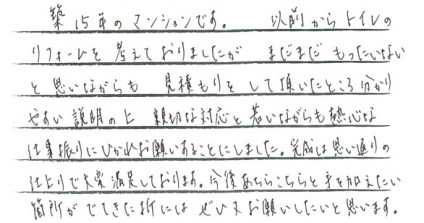 築15年のマンションです。 以前からトイレの
リフォームを考えておりましたが まだまだもったいない
と思いながらも 見積もりをして頂いたところ分かり
やすい説明の上 親切な対応と若いながらも熱心な
仕事振りにひかれお願いすることにしました。完成は思い通りの
仕上りで大変満足しております。今後あちらこちらと手を加えたい
箇所がでてきた折にはぜひ又お願いしたいと思います。